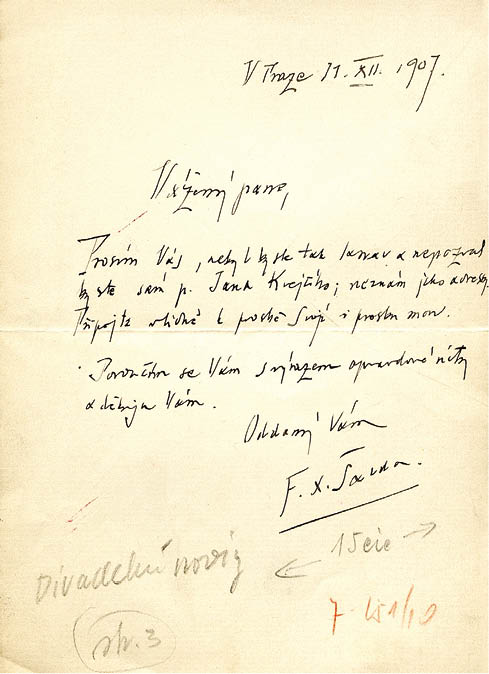 V Praze 31. XII. 1907.
Vážený pane,
Prosím Vás, nebyl byste tak laskav a nepozval
byste sám p. Jana Kvapila; neznám jeho adresy.
Připojte vlídně k prosbě Svojí i prosbu mou.
Poroučím se Vám s výrazem opravdové úcty
a děkuju Vám.
Oddaný Vám
F. X. Šalda.
15 cic
Divadelní noviny
str. 3